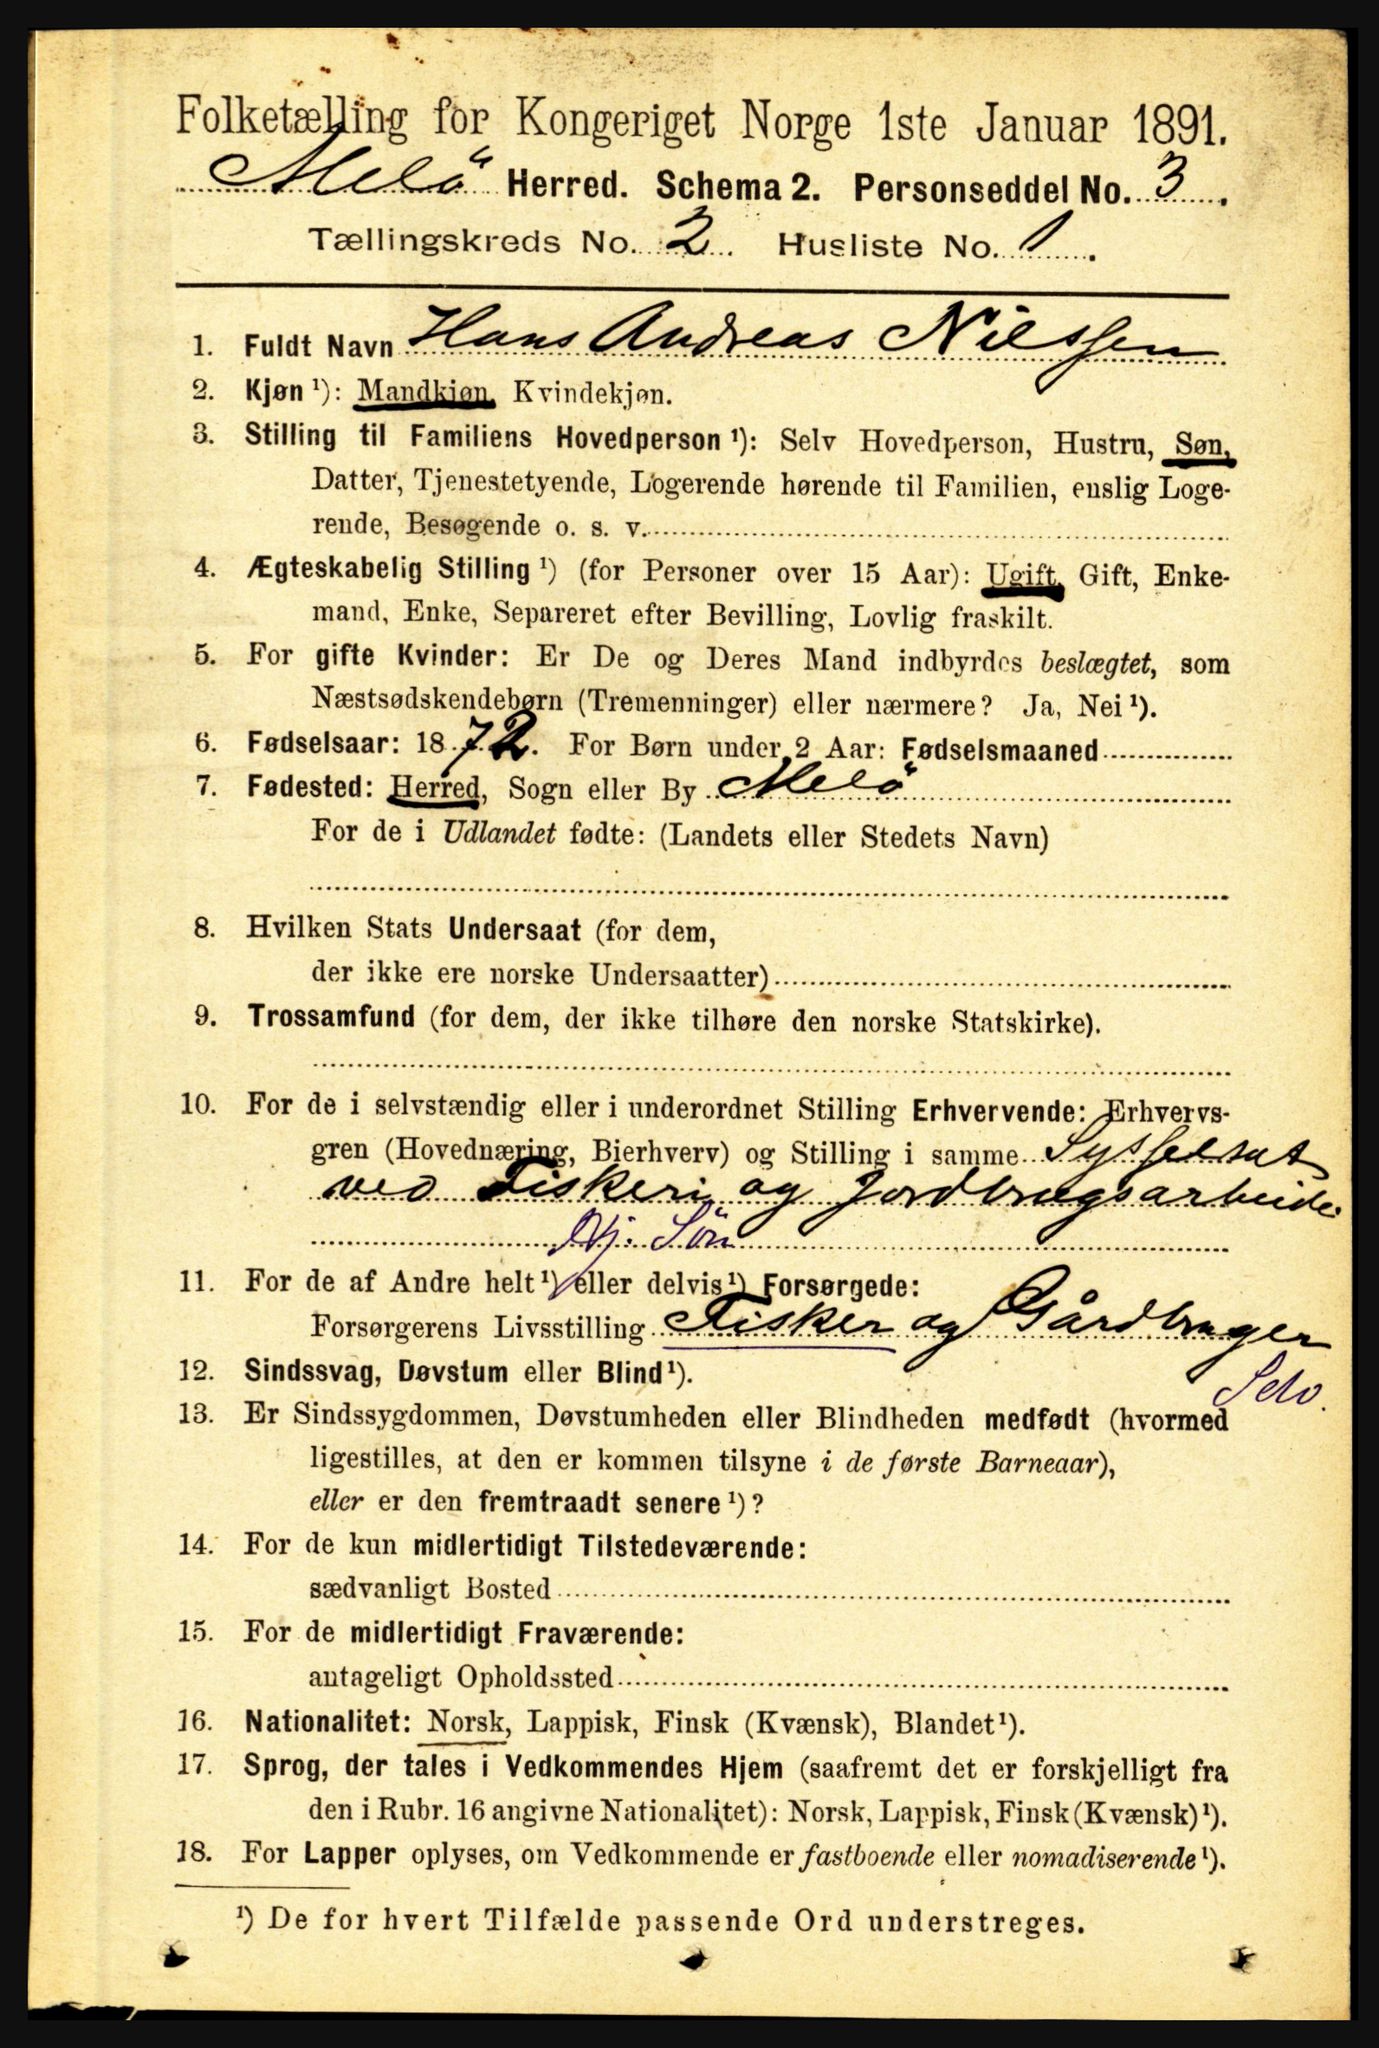 Folketælling for Kongeriget Norge 1ste Januar 1891.
Melö Herred. Schema 2. Personseddel No. 3.
Tællingskreds No. 2. Husliste No. 1.
1. Fuldt Navn Hans Andreas Nilssen
2. Kjøn ¹): Mandkjøn, Kvindekjøn.
3. Stilling til Familiens Hovedperson ¹): Selv Hovedperson, Hustru, Søn,
Datter, Tjenestetyende, Logerende hørende til Familien, enslig Loge-
rende, Besøgende o. s. v.
4. Ægteskabelig Stilling ¹) (for Personer over 15 Aar): Ugift, Gift, Enke-
mand, Enke, Separeret efter Bevilling, Lovlig fraskilt.
5. For gifte Kvinder: Er De og Deres Mand indbyrdes beslægtet, som
Næstsødskendebørn (Tremenninger) eller nærmere? Ja, Nei ¹).
6. Fødselsaar: 1872. For Børn under 2 Aar: Fødselsmaaned
7. Fødested: Herred, Sogn eller By Melö
For de i Udlandet fødte: (Landets eller Stedets Navn)
8. Hvilken Stats Undersaat (for dem,
der ikke ere norske Undersaatter)
9. Trossamfund (for dem, der ikke tilhøre den norske Statskirke).
10. For de i selvstændig eller i underordnet Stilling Erhvervende: Erhvervs-
gren (Hovednæring, Bierhverv) og Stilling i samme Sysselsat
ved Fiskeri og Jordbrugsarbeide
Hj. Sön
11. For de af Andre helt ¹) eller delvis ¹) Forsørgede:
Forsørgerens Livsstilling Fisker og Gårdbruger
Selv.
12. Sindssvag, Døvstum eller Blind ¹).
13. Er Sindssygdommen, Døvstumheden eller Blindheden medfødt (hvormed
ligestilles, at den er kommen tilsyne i de første Barneaar),
eller er den fremtraadt senere ¹)?
14. For de kun midlertidigt Tilstedeværende:
sædvanligt Bosted
15. For de midlertidigt Fraværende:
antageligt Opholdssted
16. Nationalitet: Norsk, Lappisk, Finsk (Kvænsk), Blandet ¹).
17. Sprog, der tales i Vedkommendes Hjem (saafremt det er forskjelligt fra
den i Rubr. 16 angivne Nationalitet): Norsk, Lappisk, Finsk (Kvænsk) ¹).
18. For Lapper oplyses, om Vedkommende er fastboende eller nomadiserende ¹).
¹) De for hvert Tilfælde passende Ord understreges.